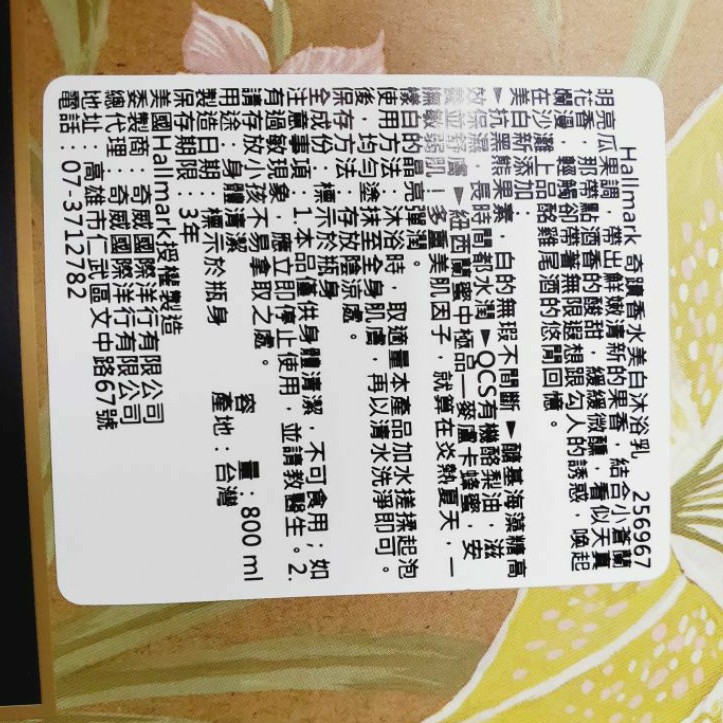 Hallmark 奇蹟香水美白沐浴乳 256967
明亮瓜果調，帶出鮮嫩清新的果香，結合小蒼蘭
花香，那帶點酒香的酸甜，緩緩微醺，看似天真
爛漫，輕觸卻帶著無限遐想跟勾人的誘惑，喚起
在沙灘上品酩雞尾酒的悠閒回憶。
美白新添加：
▶抗黑熊果素，白的無瑕不間斷 ▶醣基海藻糖高
效保濕，長時間都水潤 ▶QCS有機酪梨油，滋
養並舒膚 ▶紐西蘭蜜中極品－麥盧卡蜂蜜，安
撫敏弱肌！多重美肌因子，就算在炎熱夏天，一
樣白的晶亮彈潤。
使用方法：沐浴時，取適量本產品加水搓揉起泡
後，均勻塗抹至全身肌膚，再以清水洗淨即可。
保存方法：存放陰涼處。
全成份：標示於瓶身
注意事項：1.本品僅供身體清潔，不可食用；如
有過敏現象，應立即停止使用，並請教醫生。2.
請存放小孩不易拿取之處。
用途：身體清潔 容 量：800 ml
製造日期：標示於瓶身 產地：台灣
保存期限：3年
美國Hallmark授權製造
委製商：奇威國際洋行有限公司
總代理：奇威國際洋行有限公司
地址：高雄市仁武區文中路67號
電話：07-3712782